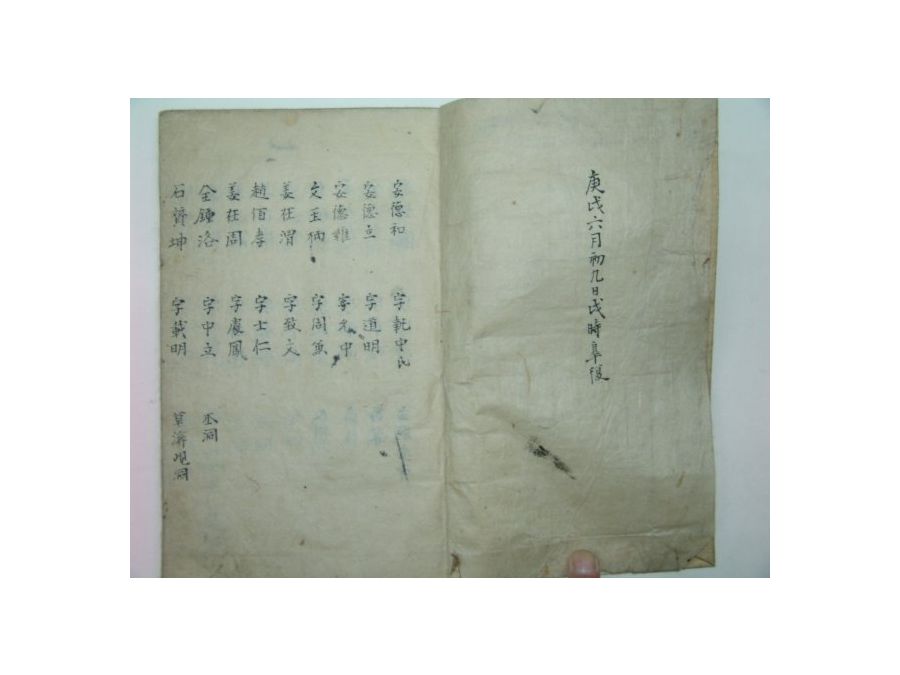 庚戌六月初九日戌時皋復
安德和 字執中氏
安德立 字道明
安德雖 字允中
文玉柄 字周魚
姜在渭 字致文
趙佰孝 字士仁
姜在周 字處鳳
金鍾洛 字中立 丕洞
石贊坤 字載明 草溪峴洞